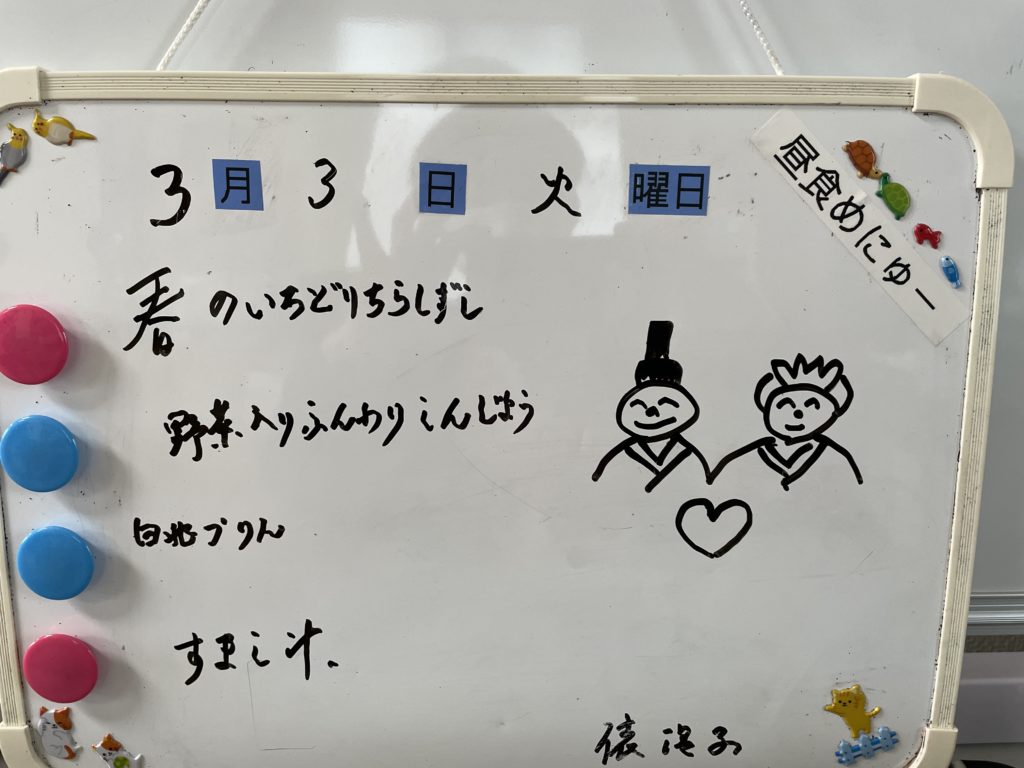 3月3日火曜日
昼食めにゅー
春のいろどりちらしずし
野菜入りふんわりしんじょう
白桃プりん
すまし汁、
俵